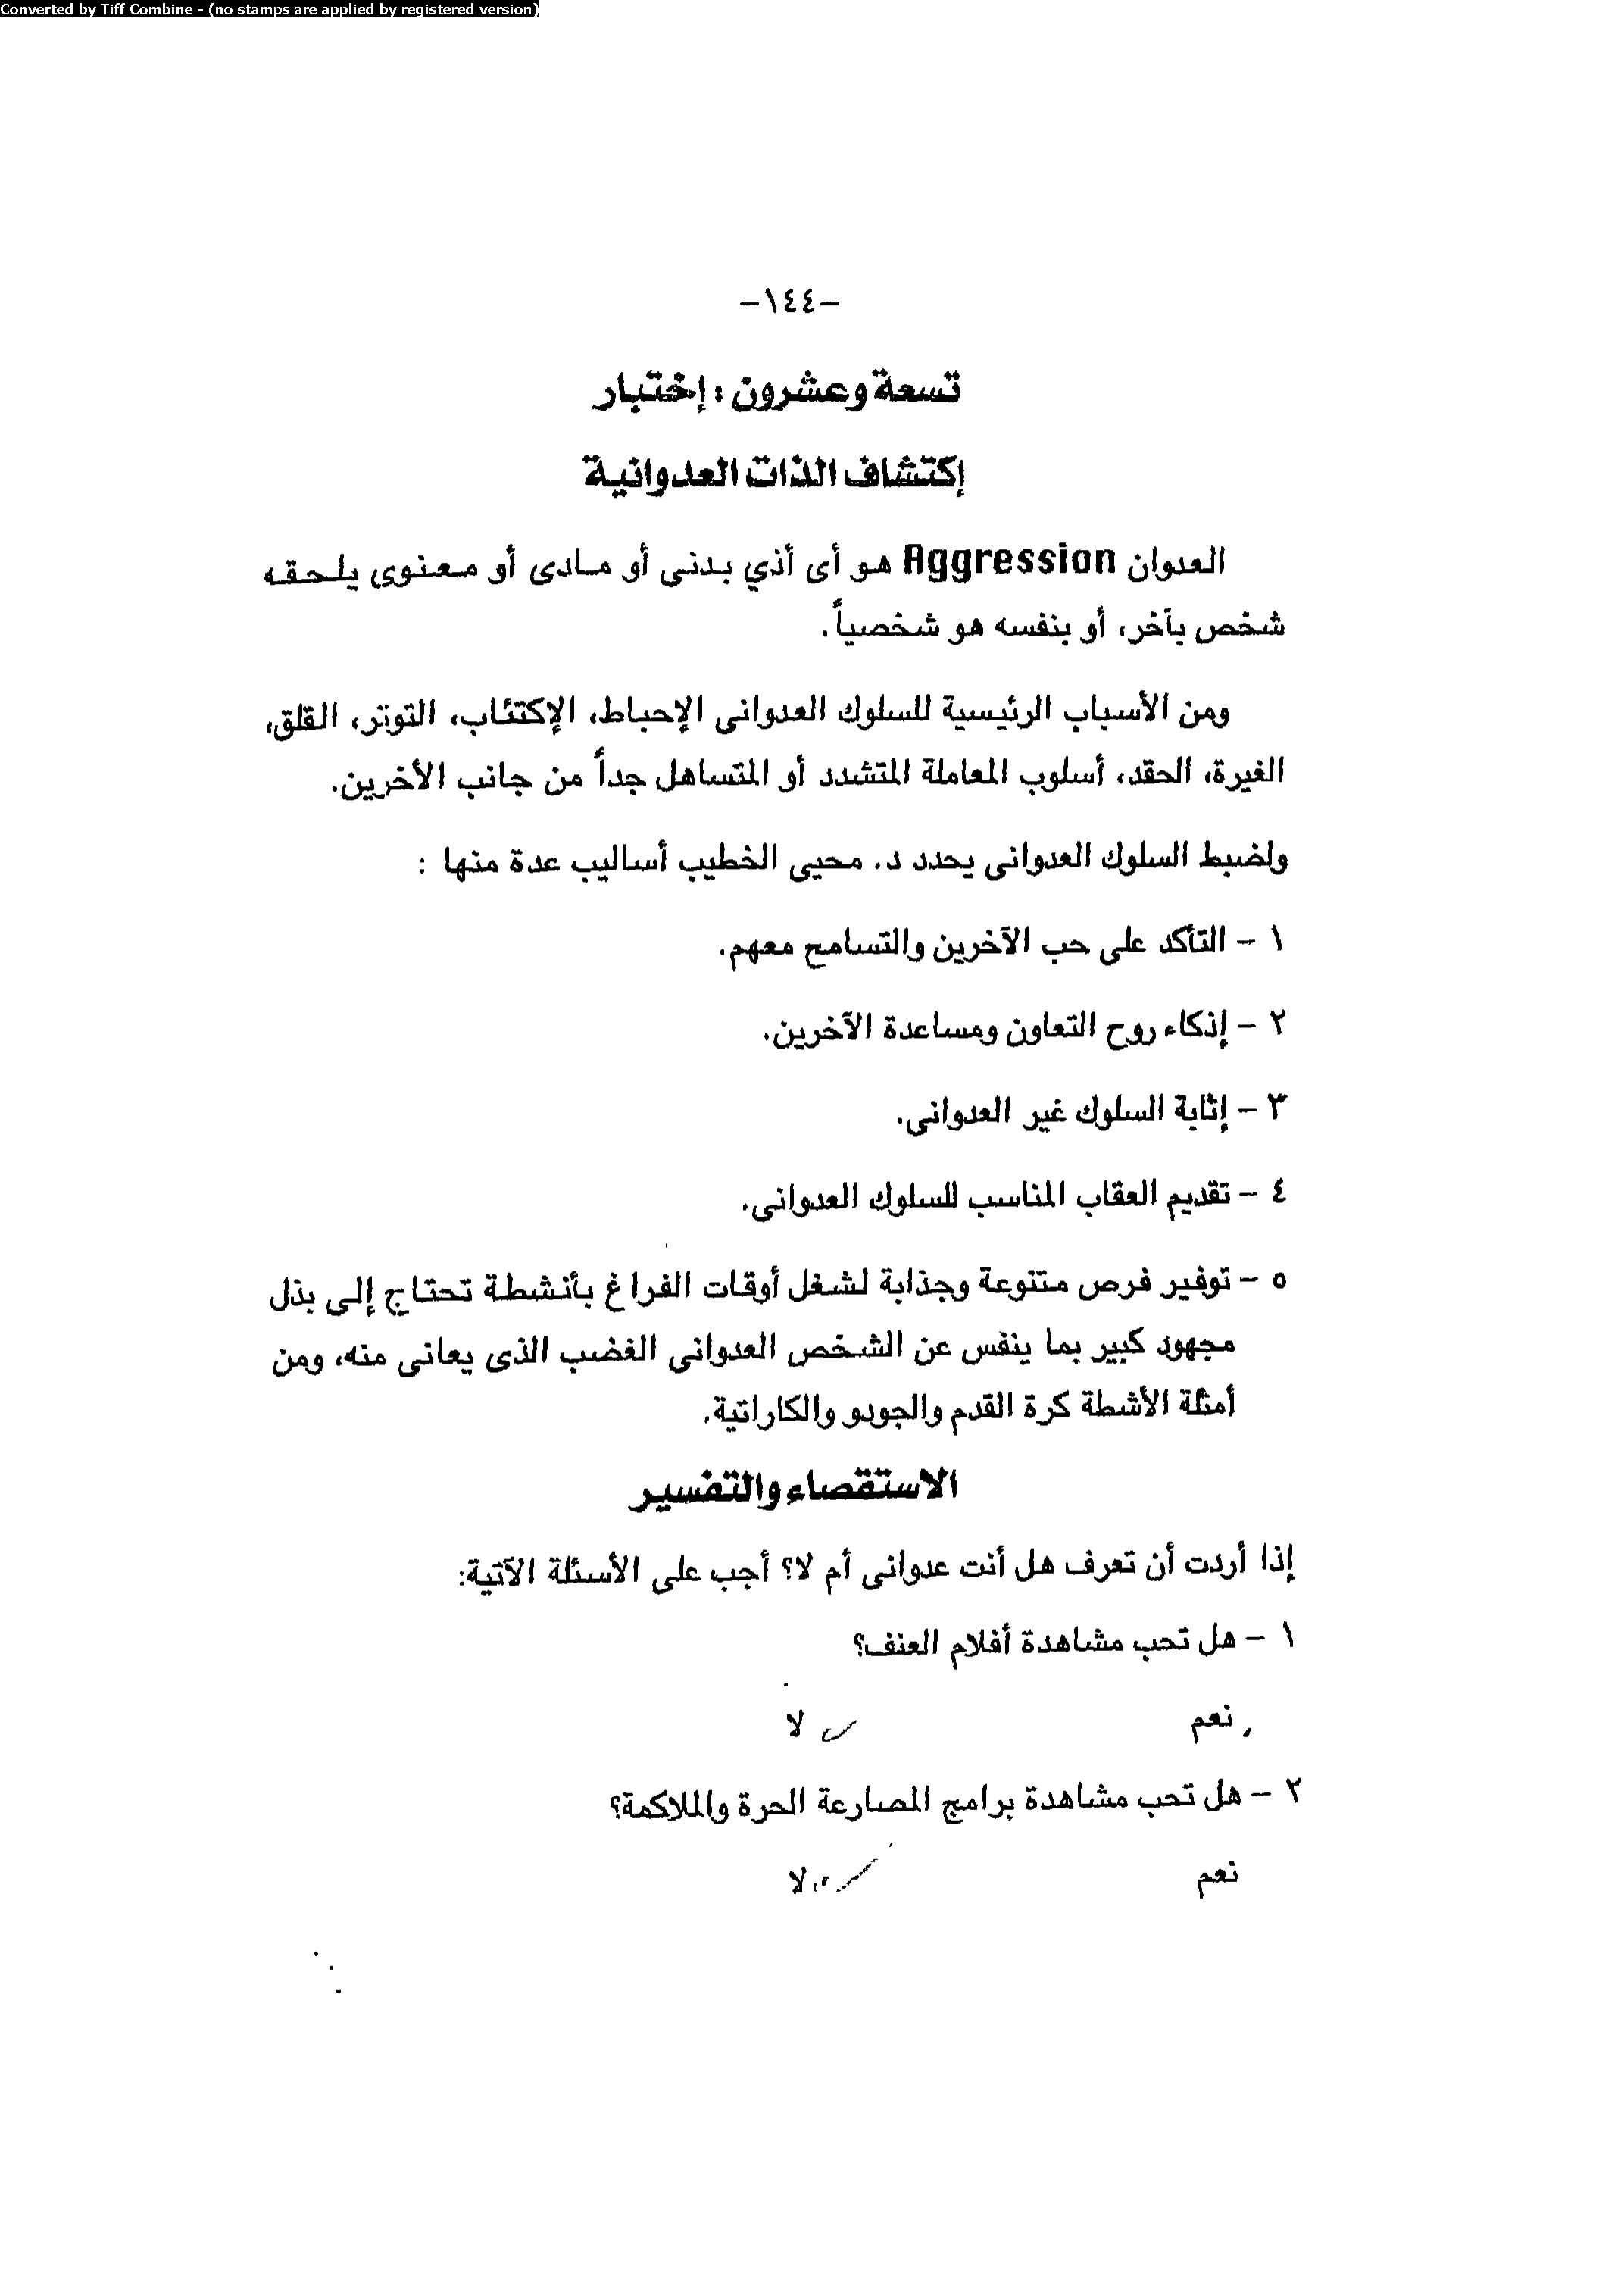 Converted by Tiff Combine - (no stamps are applied by registered version)
-١٤٤-
تسعة وعشرون : إختبار
إكتشاف الذات العدوانية
العدوان Aggression هو أى أذي بدنى أو مادى أو معنوى يلحقه
شخص بآخر، أو بنفسه هو شخصياً.
ومن الأسباب الرئيسية للسلوك العدوانى الإحباط، الإكتئاب، التوتر، القلق،
الغيرة، الحقد، أسلوب المعاملة المتشدد أو المتساهل جداً من جانب الأخرين.
ولضبط السلوك العدوانى يحدد د. محيى الخطيب أساليب عدة منها :
١ - التأكد على حب الآخرين والتسامح معهم.
٢ - إذكاء روح التعاون ومساعدة الآخرين.
٣ - إثابة السلوك غير العدوانى.
٤ - تقديم العقاب المناسب للسلوك العدوانى.
٥ - توفير فرص متنوعة وجذابة لشغل أوقات الفراغ بأنشطة تحتاج إلى بذل
مجهود كبير بما ينفس عن الشخص العدوانى الغضب الذى يعانى منه، ومن
أمثلة الأشطة كرة القدم والجودو والكاراتية.
الاستقصاء والتفسير
إذا أردت أن تعرف هل أنت عدوانى أم لا؟ أجب على الأسئلة الآتية:
١ - هل تحب مشاهدة أفلام العنف؟
نعم لا
٢ - هل تحب مشاهدة برامج المصارعة الحرة والملاكمة؟
نعم لا